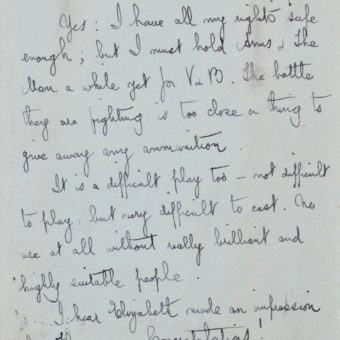 Yes: I have all my rights safe
enough; but I must hold Arms & The
Man a while yet for V & B. The battle
they are fighting is too close a thing to
give away any ammunition.
It is a difficult play too – not difficult
to play, but very difficult to cast. No
use at all without really brilliant and
highly suitable people.
I hear Elizabeth made an impression
Congratulations!